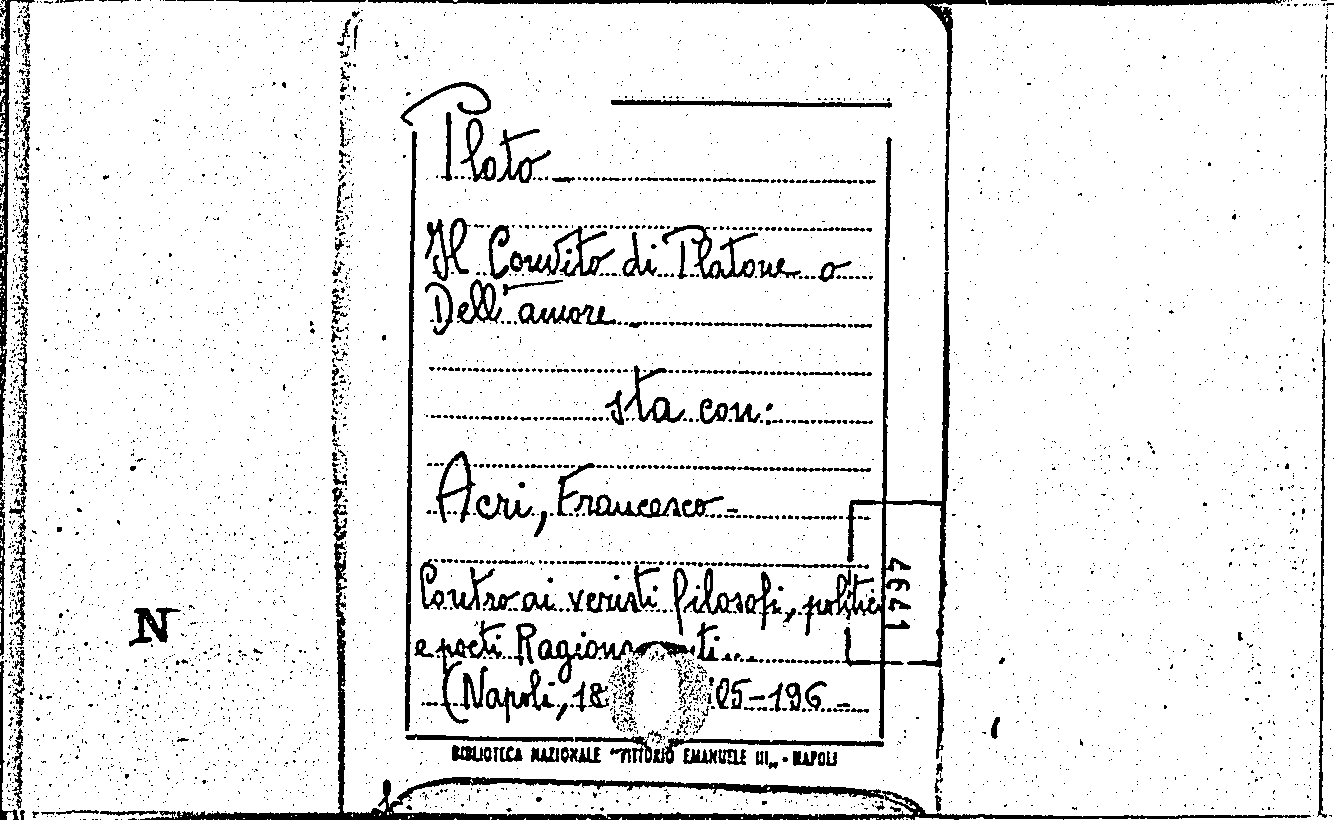 Plato
Il Convito di Platone o
Dell'amore
sta con:
Acri, Francesco -
Contro ai veristi filosofi, politici
e poeti
(Napoli, 05-196 -
BIBLIOTECA NAZIONALE "VITTORIO EMANUELE III" - NAPOLI
1797
N